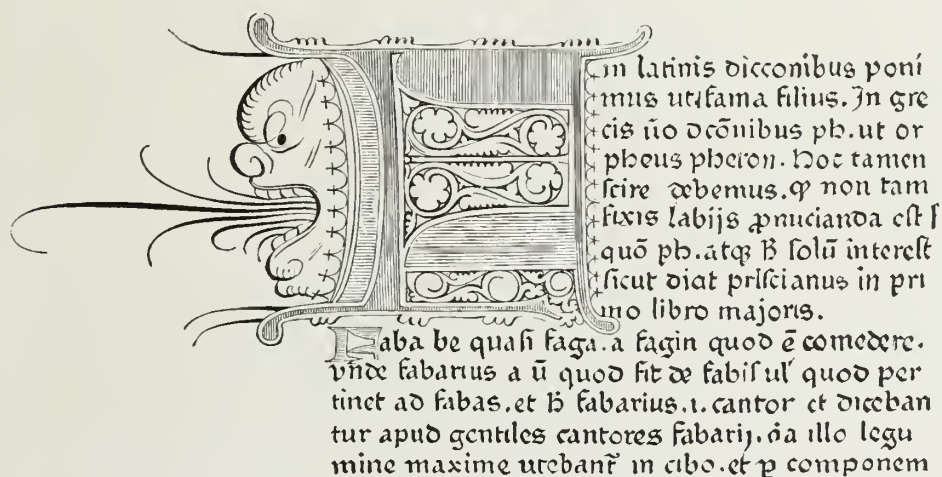 in latinis dicconibus poni
mus ut fama filius. In gre
cis ūo dcōnibus ph. ut or
pheus pheton. Hoc tamen
scire debemus. ꝙ non tam
fixis labijs ꝓnucianda est f
quō ph. atqꝫ ħ solū interest
sicut dicit priscianus in pri
mo libro majoris.
Faba be quasi faga. a fagin quod ē comedere.
vnde fabarius a ū quod fit de fabis ul' quod per
tinet ad fabas. et ħ fabarius .i. cantor et diceban
tur apud gentiles cantores fabarij. illo legu
mine maxime utebant᷑ in cibo. et ꝑ componem